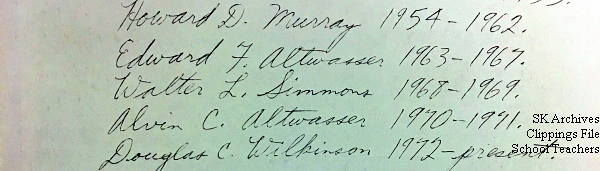 Howard D. Murray 1954-1962.
Edward F. Altwasser 1963-1967.
Walter L. Simmons 1968-1969.
Alvin C. Altwasser 1970-1971.
Douglas C. Wilkinson 1972-present.
SK Archives
Clippings File
School Teachers